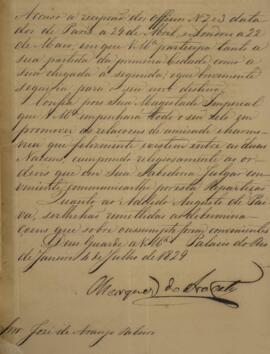 Accuso a recepção dos Officios N.º 2 e 3 data
dos de Pariz a 29 de Abril, e Londres a 22
de Maio, em que V M.ce participa tanto a
sua partida da primeira Cidade, como a
sua chegada á segunda, e que brevemente
seguiria para o seu destino.
Confia pois Sua Magestade Imperial
que V M.ce empenhará todo o seu zelo em
promover as relaçoens de amizade e harmo
nia que felizmente existem entre as duas
Nações, cumprindo religiosamente as or
dens que Sua Sabedoria julgar con
veniente, communicar-lhe por esta Repartição
Quanto ao Addido Augusto de Pai
va, ser-lhe-hão remettidas as determina
çoens que sobre o assumpto forem convenientes
Deos Guarde a V M.ce Palacio do Rio
de Janeiro 4 de Julho de 1829
Marquez do Aracaty
Snr José de Araujo Ribeiro